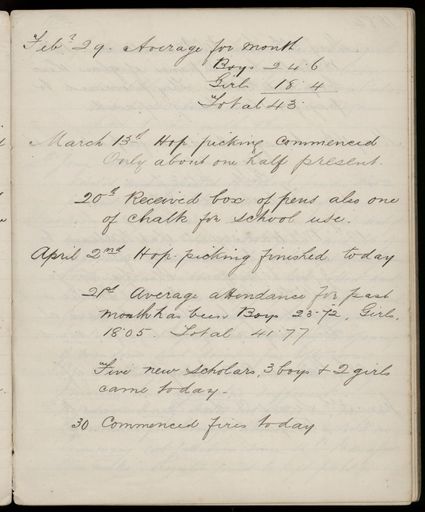 Feby 29. Average for month
Boys 24.6
Girls 18.4
Total 43.
March 13th Hop picking commenced
Only about one half present.
20th Received box of pens also one
of chalk for school use.
April 2nd Hop picking finished today
21st Average attendance for past
month has been Boys 23.72, Girls.
18.05. Total 41.77
Five new scholars, 3 boys & 2 girls
came today.
30 Commenced fires today